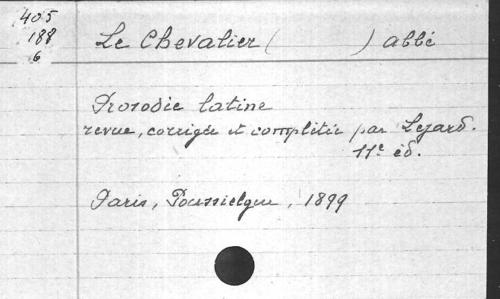 405
188
6
Le Chevalier ( ) abbé
Prosodie latine
revue, corrigée et complétée par Lejard.
11e éd.
Paris, Poussielgue, 1899